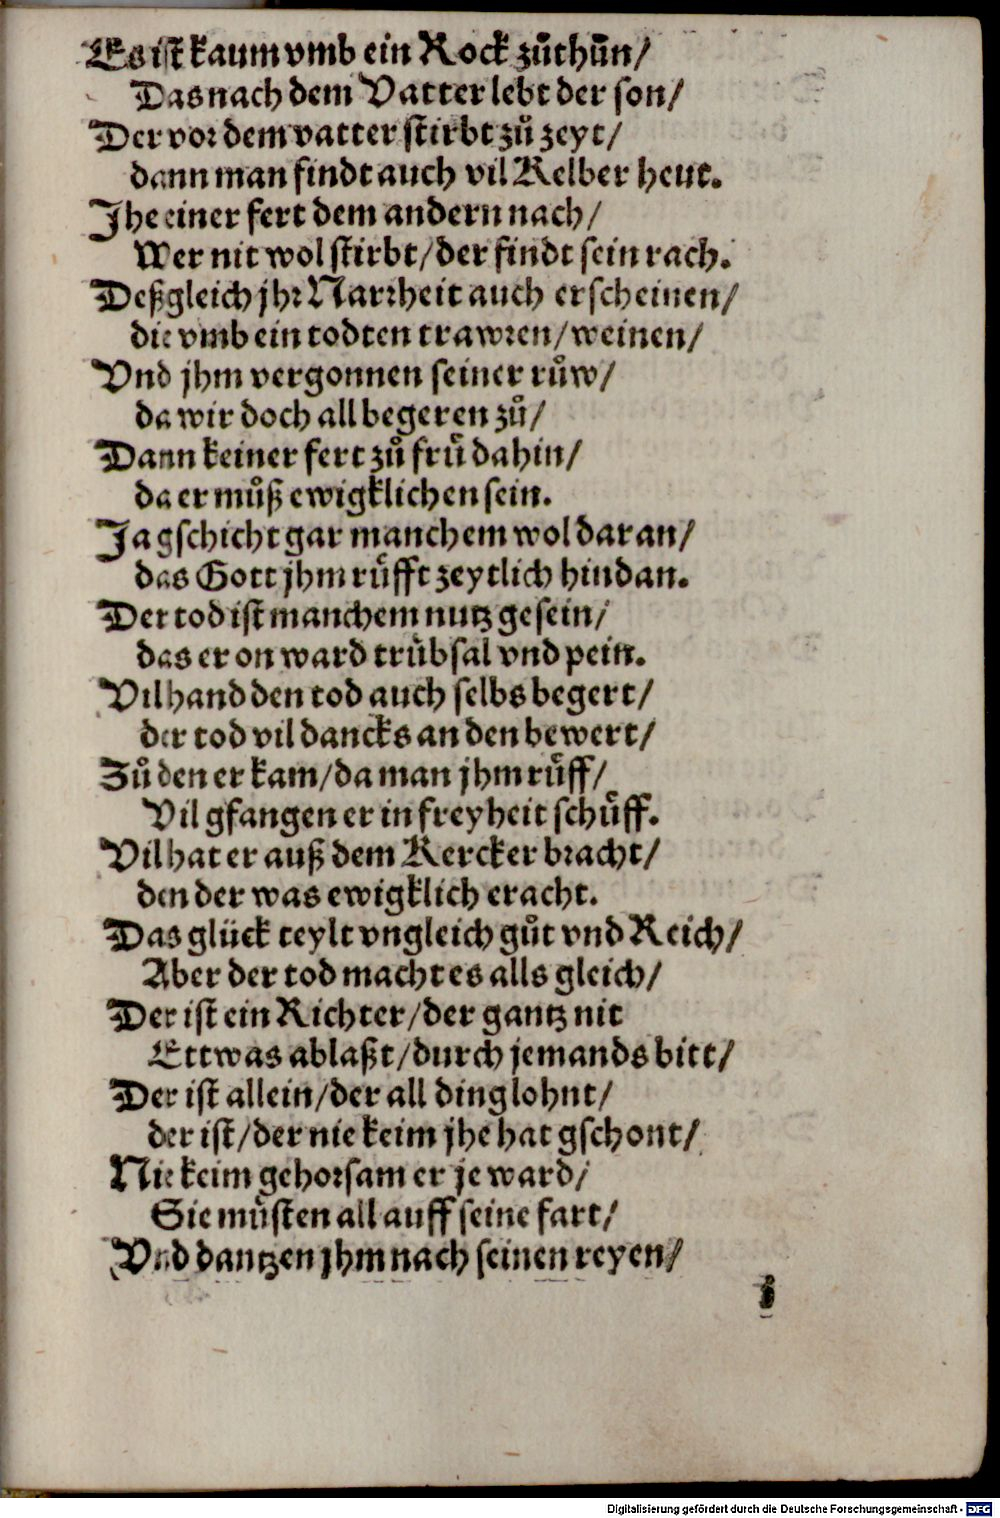 Es ist kaum vmb ein Rock zůthůn/
Das nach dem Vatter lebt der son/
Der vor dem vatter stirbt zů zeyt/
dann man findt auch vil Kelber heut.
Jhe einer fert dem andern nach/
Wer nit wol stirbt/der findt sein rach.
Deßgleich jhr Narrheit auch erscheinen/
die vmb ein todten trawren/weinen/
Vnd jhm vergonnen seiner růw/
da wir doch all begeren zů/
Dann keiner fert zů frů dahin/
da er můß ewigklichen sein.
Ja gschicht gar manchem wol daran/
das Gott jhm růfft zeytlich hindan.
Der tod ist manchem nutz gesein/
das er on ward trübsal vnd pein.
Vil hand den tod auch selbs begert/
der tod vil dancks an den bewert/
Zů den er kam/da man jhm růff/
Vil gfangen er in freyheit schůff.
Vil hat er auß dem Kercker bracht/
den der was ewigklich eracht.
Das glück teylt vngleich gůt vnd Reich/
Aber der tod macht es alls gleich/
Der ist ein Richter/der gantz nit
Ettwas ablaßt/durch jemands bitt/
Der ist allein/der all ding lohnt/
der ist/der nie keim jhe hat gschont/
Nie keim gehorsam er je ward/
Sie můsten all auff seine fart/
Vnd dantzen jhm nach seinen reyen/
Digitalisierung gefördert durch die Deutsche Forschungsgemeinschaft - DFG